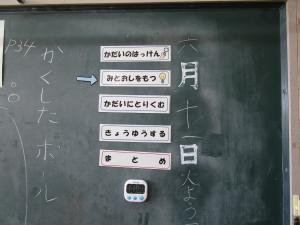 六月十一日火よう
かだいのはっけん
みとおしをもつ
かだいにとりくむ
きょうゆうする
まとめ
P34
かくしたボール